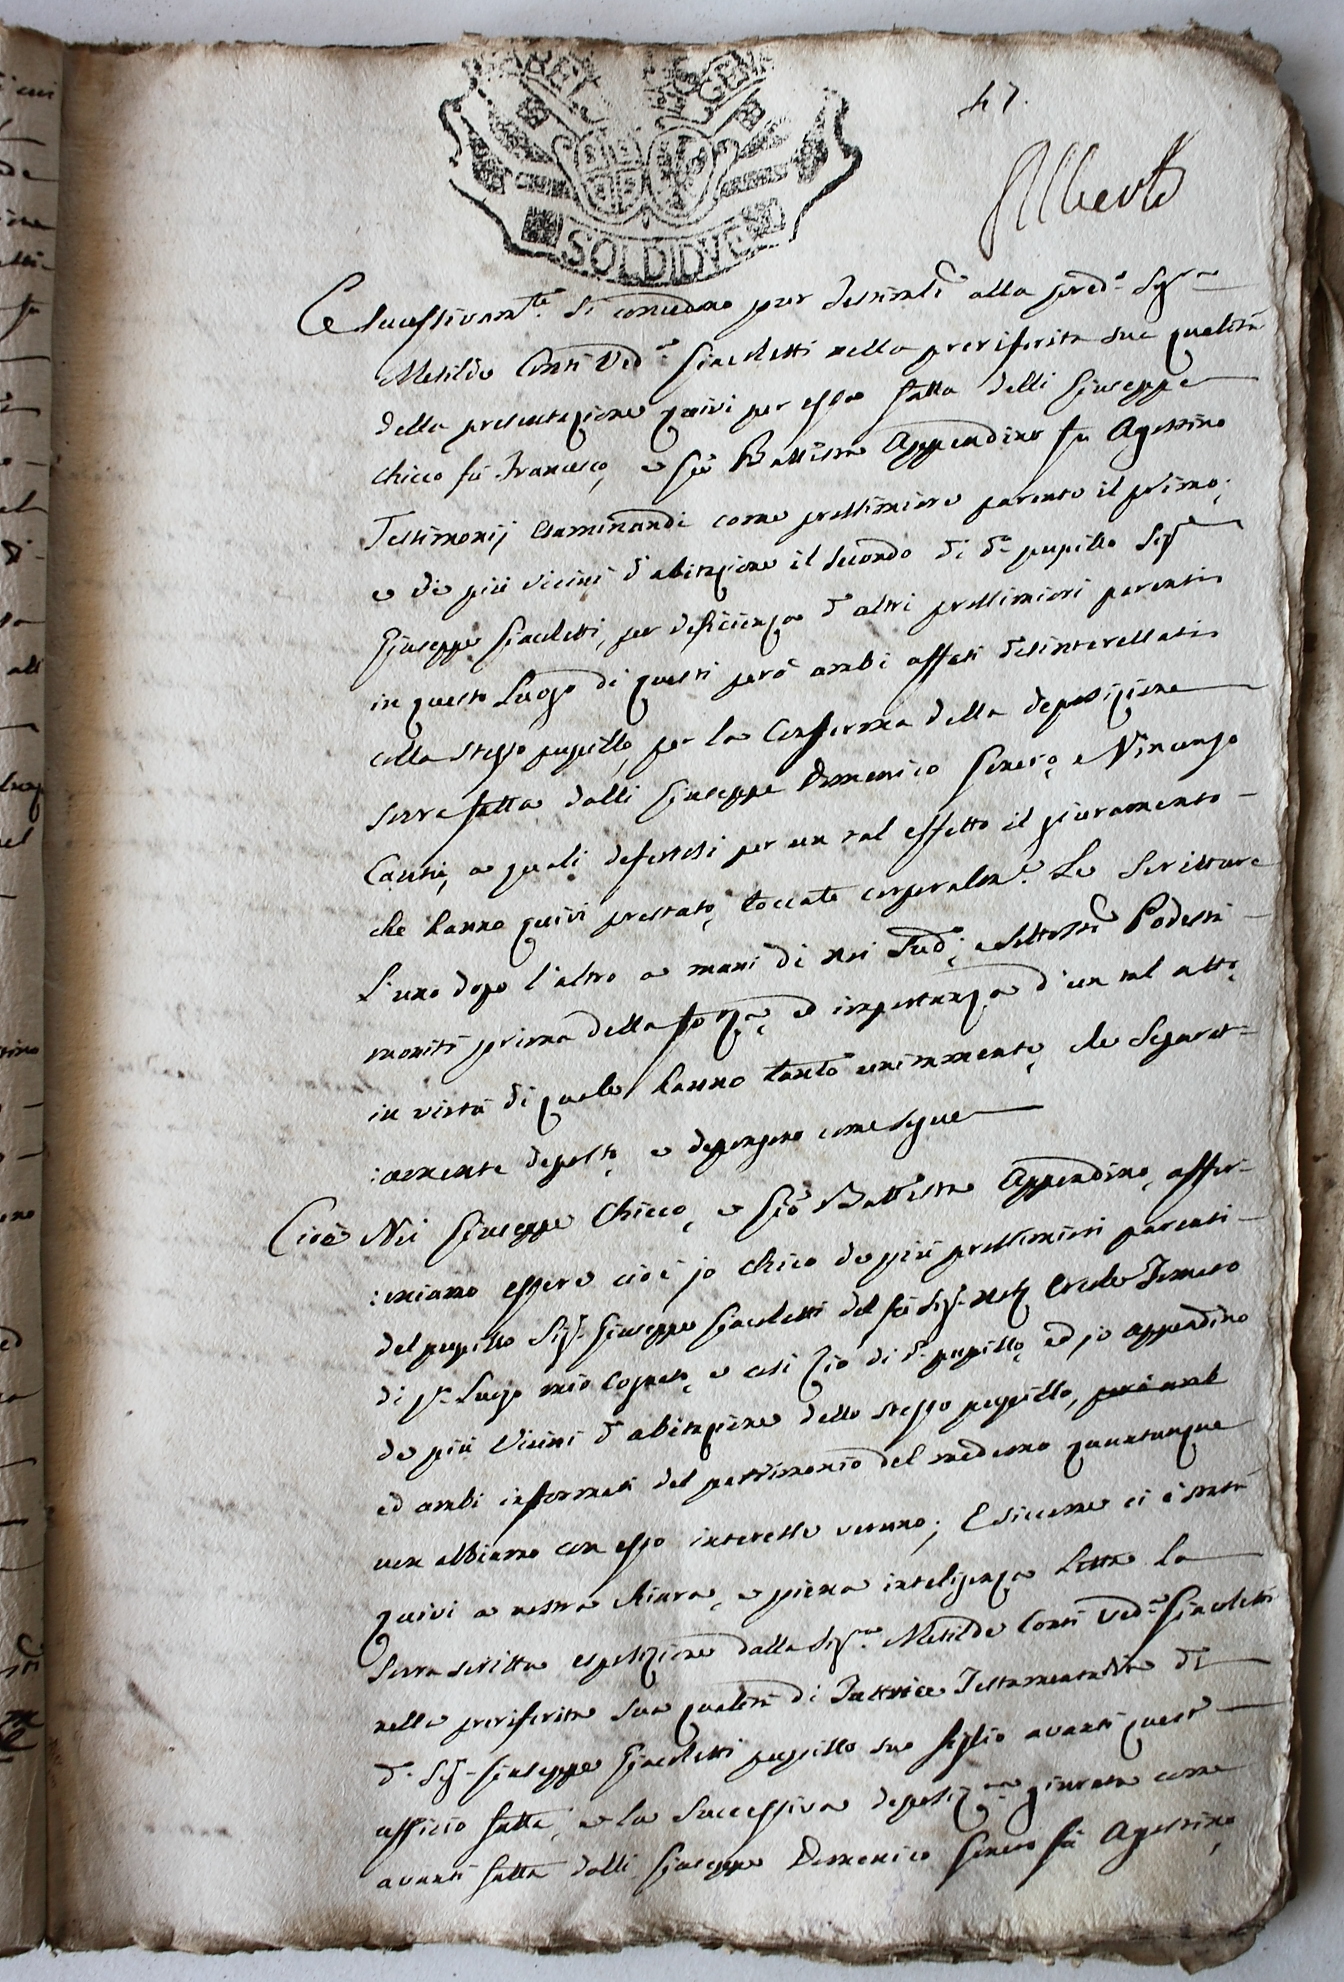 47.
Alberto
SOLDI DVE
E successivam.te si concedono pur testim.li alla pred.a Sig.ra
Metilde Conti Ved.a Giacoletti nella preriferita sua qualità
della presentazione quivi per essa fatta delli Giuseppe
Chicco fù Francesco, e Gio Battista Appendino fu Agostino
Testimonij esaminandi come prossimiore parente il primo,
e de più vicini d'abitazione il secondo di d.o pupillo Sig.r
Giuseppe Giacoletti, per deficienza d'altri prossimiori parenti
in questo Luogo di questi però ambi affati disinteressati
collo stesso pupillo, per la conferma della deposizione
sovra fatta dalli Giuseppe Domenico Genero, e Vincenzo
a quali defertosi per un tal effetto il giuramento
che hanno quivi prestato, toccate corporalm.e le Scritture
l'uno dopo l'altro a mani di noi Sud.o, e sottoss.to Podestà
moniti prima della forza, ed importanza d'un tal atto,
in virtù di quale hanno tanto unimmente, che separat=
:amente deposto, e depongono come segue
Cioè Noi Giuseppe Chicco, e Gio Batt'ista Appendino, affer=
:miamo essere cioè jo Chico de più prossimiori parenti
del pupillo Sig.r Giuseppe Giacoletti del fù Sig.r Not.o Ercole Tomaso
di q.to Luogo mio Cognato, e così Zio di d.o pupillo, ed jo appendino
de più Vicini d'abitazione dello stesso pupillo,
ed ambi informati del patrimonio del medemo quantunque
non abbiamo con esso interesse veruno; E siccome ci è stata
quivi a nostra chiara, e piena inteligenza letta la
sovra scritta esposizione dalla Sig.ra Metilde Conti Ved.a Giacoletti
nella preriferita sua qualità di Tuttrice Testamentaria di
d.o Sig.r Giuseppe Giacoletti pupillo suo figlio avanti quest'
ufficio fatta, e la successiva deposiz.ne giurata come
avanti fatta dalli Giuseppe Domenico Genero fù Agostino,